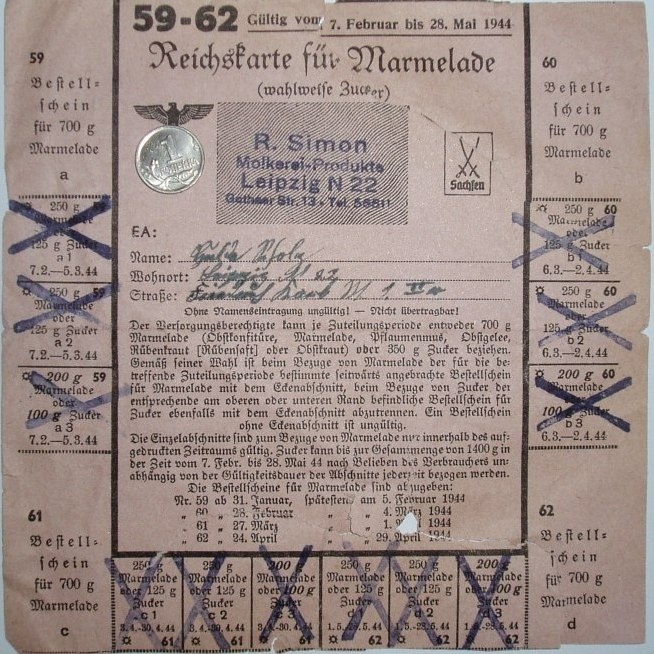 59-62 Gültig vom 7. Februar bis 28. Mai 1944
Reichskarte für Marmelade
(wahlweise Zucker)
59
Bestell-
schein
für 700 g
Marmelade
a
60
Bestell-
schein
für 700 g
Marmelade
b
1
R. Simon
Molkerei-Produkte
Leipzig N 22
Gothaer Str. 13 • Tel. 56511
Sachsen
EA:
Name:
Wohnort: Leipzig N 22
Straße:
Ohne Namenseintragung ungültig! — Nicht übertragbar!
Der Versorgungsberechtigte kann je Zuteilungsperiode entweder 700 g
Marmelade (Obstkonfitüre, Marmelade, Pflaumenmus, Obstgelee,
Rübenkraut [Rübensaft] oder Obstkraut) oder 350 g Zucker beziehen.
Gemäß seiner Wahl ist beim Bezuge von Marmelade der für die be-
treffende Zuteilungsperiode bestimmte seitwärts angebrachte Bestellschein
für Marmelade mit dem Eckenabschnitt, beim Bezuge von Zucker der
entsprechende am oberen oder unteren Rand befindliche Bestellschein für
Zucker ebenfalls mit dem Eckabschnitt abzutrennen. Ein Bestellschein
ohne Eckenabschnitt ist ungültig.
Die Einzelabschnitte sind zum Bezuge von Marmelade nur innerhalb des auf-
gedruckten Zeitraums gültig. Zucker kann bis zur Gesamtmenge von 1400 g in
der Zeit vom 7. Febr. bis 28. Mai 44 nach Belieben des Verbrauchers un-
abhängig von der Gültigkeitsdauer der Abschnitte jederzeit bezogen werden.
Die Bestellscheine für Marmelade sind abzugeben:
Nr. 59 ab 31. Januar, spätestens am 5. Februar 1944
„ 60 „ 28. Februar „ „ 4. März 1944
„ 61 „ 27. März „ „ 1. April 1944
„ 62 „ 24. April „ „ 29. April 1944
250 g
Marmelade
oder
125 g Zucker
a1
7.2.—5.3.44
250 g 59
Marmelade
oder
125 g Zucker
a2
7.2.—5.3.44
200 g 59
Marmelade
oder
100 g Zucker
a3
7.2.—5.3.44
250 g 60
Marmelade
oder
125 g Zucker
b1
6.3.—2.4.44
250 g 60
Marmelade
oder
125 g Zucker
b2
6.3.—2.4.44
200 g 60
Marmelade
oder
100 g Zucker
b3
6.3.—2.4.44
61
Bestell-
schein
für 700 g
Marmelade
c
250 g
Marmelade
oder 125 g
Zucker
c1
3.4.-30.4.44
61
250 g
Marmelade
oder 125 g
Zucker
c2
3.4.-30.4.44
61
200 g
Marmelade
oder 100 g
Zucker
c3
3.4.-30.4.44
61
250 g
Marmelade
oder 125 g
Zucker
d1
1.5.-28.5.44
62
250 g
Marmelade
oder 125 g
Zucker
d2
1.5.-28.5.44
62
200 g
Marmelade
oder 100 g
Zucker
d3
1.5.-28.5.44
62
62
Bestell-
schein
für 700 g
Marmelade
d